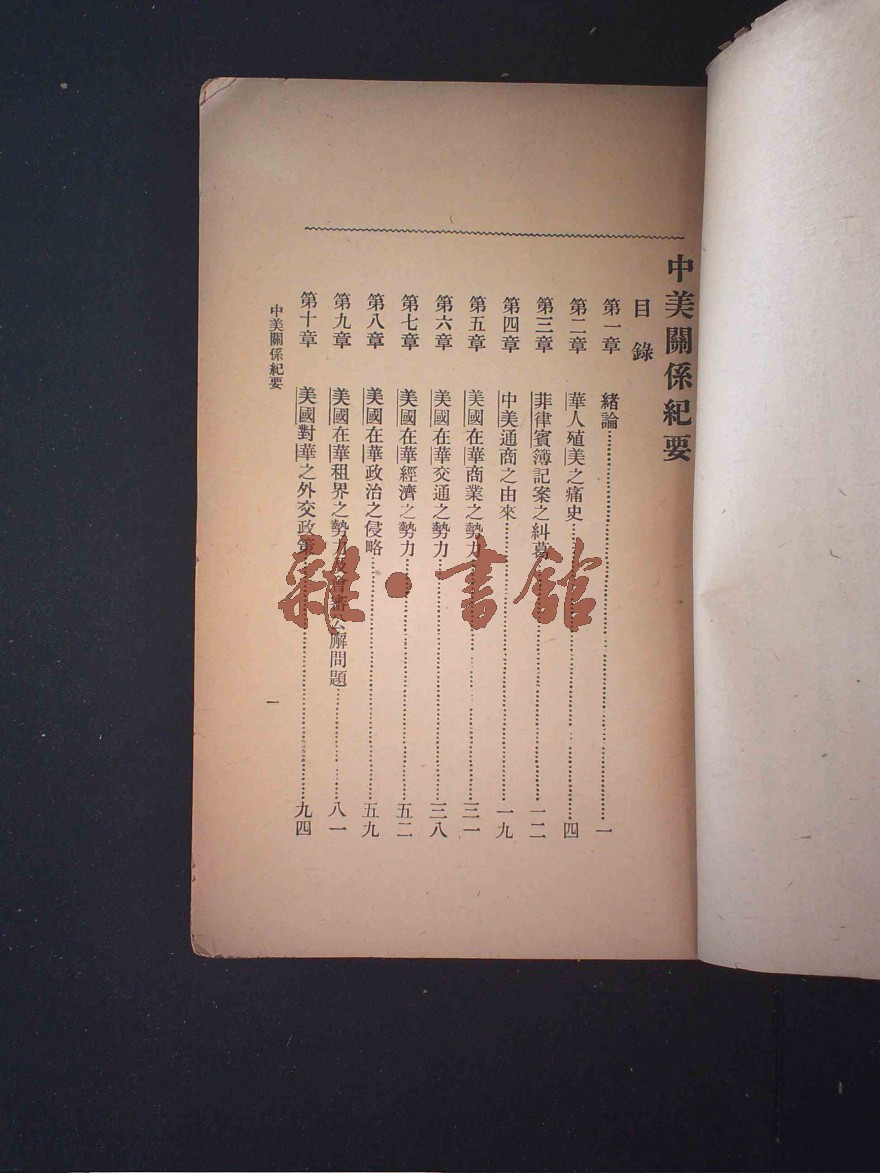 中美關係紀要
目錄
第一章 緒論……一
第二章 華人殖美之痛史……四
第三章 菲律賓簿記案之糾葛……一二
第四章 中美通商之由來……一九
第五章 美國在華商業之勢力……三一
第六章 美國在華交通之勢力……三八
第七章 美國在華經濟之勢力……五二
第八章 美國在華政治之侵略……五九
第九章 美國在華租界之勢力及會審公廨問題……八一
第十章 美國對華之外交政策……九四
中美關係紀要
一
雜·書館